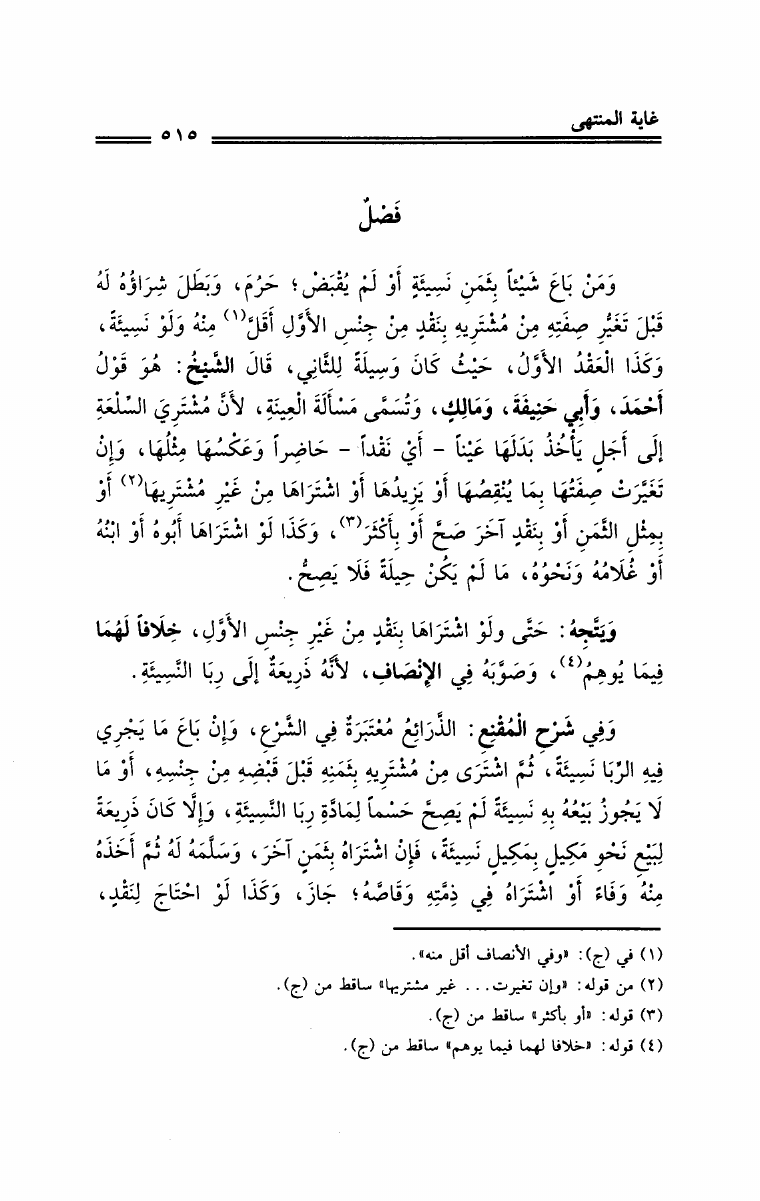 غاية المنتهى
٥١٥
فَصْلٌ
وَمَنْ بَاعَ شَيْئاً بِثَمَنٍ نَسِيئَةٍ أَوْ لَمْ يُقْبَضْ؛ حَرُمَ، وَبَطَلَ شِرَاؤُهُ لَهُ
قَبْلَ تَغَيُّرِ صِفَتِهِ مِنْ مُشْتَرِيهِ بِنَقْدٍ مِنْ جِنْسِ الأَوَّلِ أَقَلَّ(١) مِنْهُ وَلَوْ نَسِيئَةً،
وَكَذَا الْعَقْدُ الأَوَّلُ، حَيْثُ كَانَ وَسِيلَةً لِلثَّانِي، قَالَ الشَّيْخُ: هُوَ قَوْلُ
أَحْمَدَ، وَأَبِي حَنِيفَةَ، وَمَالِكٍ، وَتُسَمَّى مَسْأَلَةَ الْعِينَةِ، لأَنَّ مُشْتَرِيَ السِّلْعَةِ
إِلَى أَجَلٍ يَأْخُذُ بَدَلَهَا عَيْناً - أَيْ نَقْداً - حَاضِراً وَعَكْسُهَا مِثْلُهَا، وَإِنْ
تَغَيَّرَتْ صِفَتُهَا بِمَا يُنْقِصُهَا أَوْ يَزِيدُهَا أَوْ اشْتَرَاهَا مِنْ غَيْرِ مُشْتَرِيهَا(٢) أَوْ
بِمِثْلِ الثَّمَنِ أَوْ بِنَقْدٍ آخَرَ صَحَّ أَوْ بِأَكْثَرَ(٣)، وَكَذَا لَوْ اشْتَرَاهَا أَبُوهُ أَوْ ابْنُهُ
أَوْ غُلَامُهُ وَنَحْوُهُ، مَا لَمْ يَكُنْ حِيلَةً فَلَا يَصِحُّ.
وَيَتَّجِهُ: حَتَّى ولَوْ اشْتَرَاهَا بِنَقْدٍ مِنْ غَيْرِ جِنْسِ الأَوَّلِ، خِلَافاً لَهُمَا
فِيمَا يُوهِمُ(٤)، وَصَوَّبَهُ فِي الإِنْصَافِ، لأَنَّهُ ذَرِيعَةٌ إِلَى رِبَا النَّسِيئَةِ.
وَفِي شَرْحِ الْمُقْنِعِ: الذَّرَائِعُ مُعْتَبَرَةٌ فِي الشَّرْعِ، وَإِنْ بَاعَ مَا يَجْرِي
فِيهِ الرِّبَا نَسِيئَةً، ثُمَّ اشْتَرَى مِنْ مُشْتَرِيهِ بِثَمَنِهِ قَبْلَ قَبْضِهِ مِنْ جِنْسِهِ، أَوْ مَا
لَا يَجُوزُ بَيْعُهُ بِهِ نَسِيئَةً لَمْ يَصِحَّ حَسْماً لِمَادَّةِ رِبَا النَّسِيئَةِ، وَإِلَّا كَانَ ذَرِيعَةً
لِبَيْعِ نَحْوِ مَكِيلٍ بِمَكِيلٍ نَسِيئَةً، فَإِنْ اشْتَرَاهُ بِثَمَنٍ آخَرَ، وَسَلَّمَهُ لَهُ ثُمَّ أَخَذَهُ
مِنْهُ وَفَاءً أَوْ اشْتَرَاهُ فِي ذِمَّتِهِ وَقَاصَّهُ؛ جَازَ، وَكَذَا لَوْ احْتَاجَ لِنَقْدٍ،
(١) في (ج): «وفي الأنصاف أقل منه».
(٢) من قوله: «وإن تغيرت... غير مشتريها» ساقط من (ج).
(٣) قوله: «أو بأكثر» ساقط من (ج).
(٤) قوله: «خلافا لهما فيما يوهم» ساقط من (ج).